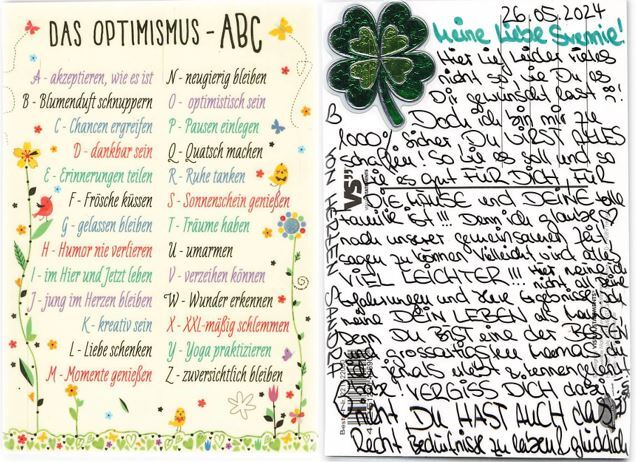 DAS OPTIMISMUS-ABC
A - akzeptieren, wie es ist
B - Blumenduft schnuppern
C - Chancen ergreifen
D - dankbar sein
E - Erinnerungen teilen
F - Frösche küssen
G - gelassen bleiben
H - Humor nie verlieren
I - im Hier und Jetzt leben
J - jung im Herzen bleiben
K - kreativ sein
L - Liebe schenken
M - Momente genießen
N - neugierig bleiben
O - optimistisch sein
P - Pausen einlegen
Q - Quatsch machen
R - Ruhe tanken
S - Sonnenschein genießen
T - Träume haben
U - umarmen
V - verzeihen können
W - Wunder erkennen
X - XXL-mäßig schlemmen
Y - Yoga praktizieren
Z - zuversichtlich bleiben
26.05.2024
Meine Liebe Svernie!
Hier lief leider vieles
nicht so wie Du es
Dir gewünscht hast
Doch ich bin mir zu
1000% sicher DU WIRST ALLES
schaffen! So wie es soll und so
es gut FÜR DICH FÜR
DIE MÄUSE und DEINE tolle
Familie ist!!! Denn ich glaube
nach unserer gemeinsamen Zeit
sagen zu können Vielleicht wird alles
VIEL LEICHTER!!! Hier meine ich nicht all deine
Erfahrungen und Ergebnisse
meine DEIN LEBEN als
Denn DU BIST eine der BESTEN
und grossartigsten Mamas die
ich jemals erlebt & kennengelernt
habe! VERGISS DICH dabei
nicht DU HAST AUCH das
Recht Bedürfnisse zu leben & glücklich
VON HERZEN SANDRA
VS